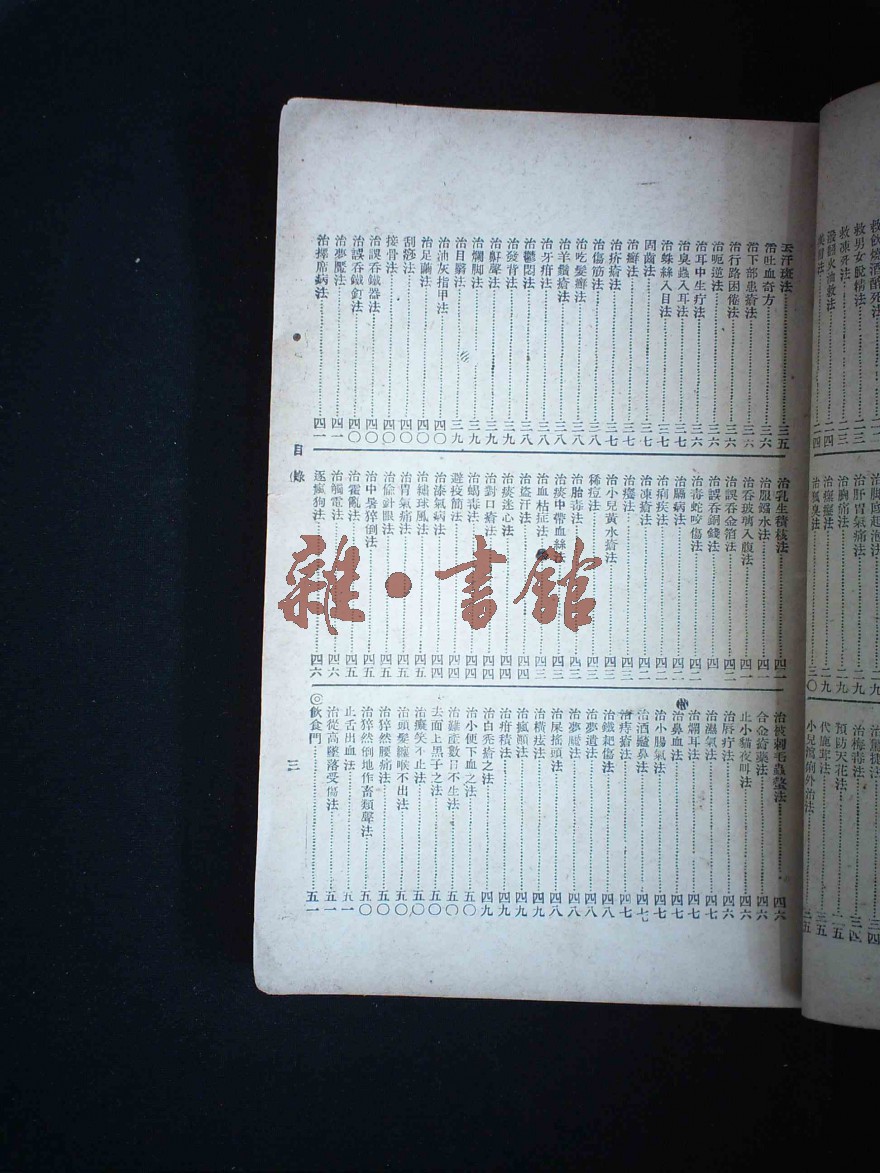 去汗斑法……三五
治吐血奇方……三六
治下部患瘡法……三六
治行路困倦法……三六
治呃逆法……三六
治耳中生疔法……三六
治臭蟲入耳法……三七
治蛛絲入目法……三七
固齒法……三七
治癬法……三七
治疥瘡法……三七
治傷筋法……三八
治吃髮癬法……三八
治羊鬚瘡法……三八
治牙疳法……三八
治鬱悶法……三八
治發背法……三九
治鼾聲法……三九
治爛脚法……三九
治目翳法……三九
治油灰指甲法……四〇
治足繭法……四〇
刮痧法……四〇
接骨法……四〇
治誤吞鐵器法……四〇
治誤吞鐵釘法……四〇
治夢魘法……四一
治擇席病法……四一
治乳生積核法……四一
治服鹽水法……四一
治吞玻璃入腹法……四一
治誤吞金箔法……四二
治誤吞銅錢法……四
治毒蛇咬傷法……四二
治膈病法……四二
治痢疾法……四二
治凍瘡法……四二
治癭法……四三
治小兒黃水瘡法……四三
稀痘法……四三
治胎毒法……四三
治痰中帶血絲法……四三
治血枯症法……四三
治盜汗法……四四
治痰迷心法……四四
治對口瘡法……四四
治蝎毒法……四四
避疫簡法……四四
治漆氣病法……四四
治繡球風法……四五
治胃氣痛法……四五
治偷針眼法……四五
治中暑猝倒法……四五
治霍亂法……四五
治觸電法……四六
逐瘋狗法……四六
治被刺毛蟲螫法……四六
合金瘡藥法……四六
止小貓夜叫法……四六
治唇疔法……四六
治濕氣法……四七
治爛耳法……四七
治鼻血法……四七
治小腸氣法……四七
治酒齇鼻法……四七
治痔瘡法……四七
治鐵耙傷法……四八
治夢遺法……四八
治夢魘法……四八
治屎搖頭法……四八
治橫痃法……四九
治瘋癲法……四九
治疳積法……四九
治白禿瘡之法……四九
治小便下血之法……五〇
治難產數日不生法……五〇
去面上黑子之法……五〇
治癡笑不止法……五〇
治頭髮纏喉不出法……五〇
治猝然腰痛法……五〇
治猝然倒地作畜類聲法……五〇
止舌出血法……五一
治從高墜落受傷法……五一
◎飲食門……五一
目錄
三
雜·書館
救飲燒酒醉死法
救男女脫精法……二三
救凍死法……二三
潑翻火油救法……二四
治脚底起泡法……二九
治肝胃氣痛法……二九
治胸痛法……二九
治瘰癧法……二九
治狐臭法……三〇
治梅毒法……三四
預防天花法
代鹿茸法……三五